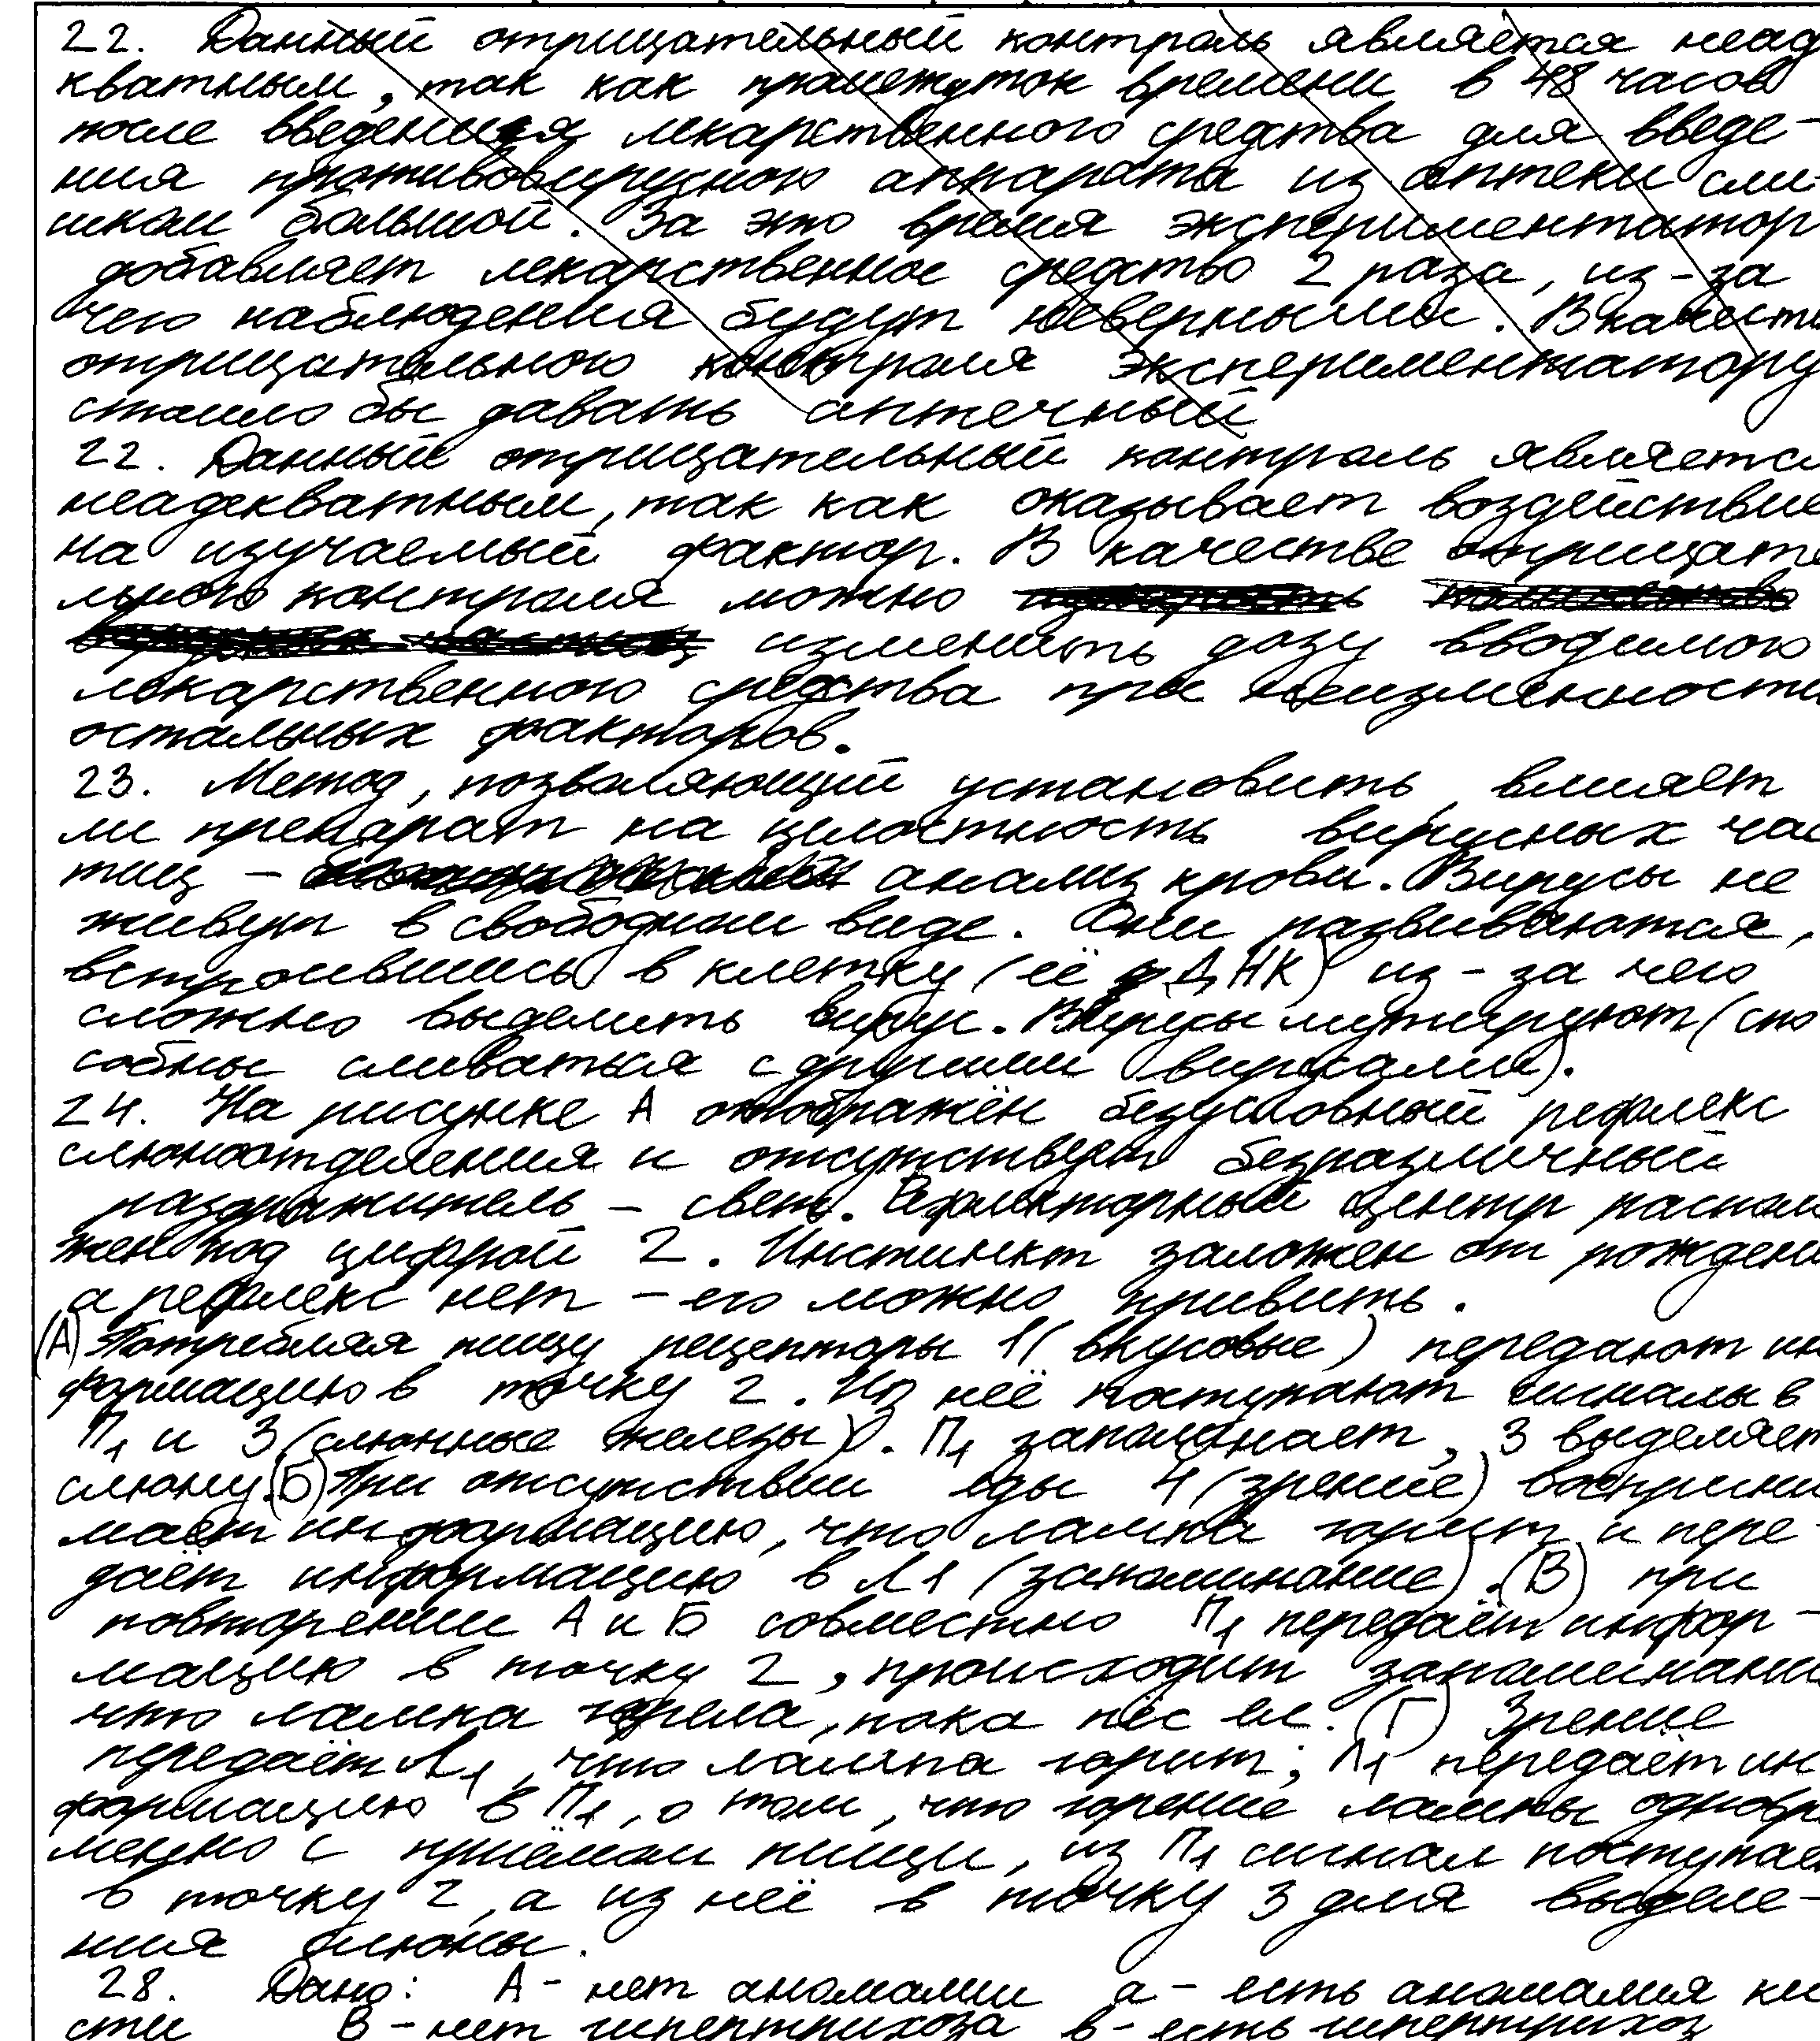 22. Данный отрицательный контроль является неад
кватным, так как промежуток времени в 48 часов
после введения лекарственного средства для введе-
ния противовирусного аппарата из аптеки сли-
шком большой. За это время экспериментатор
добавляет лекарственное средство 2 раза, из-за
чего наблюдения будут неверными. В качеств
отрицательного контроля экспериментатору
стоило бы давать аптечный
22. Данный отрицательный контроль является
неадекватным, так как оказывает воздействие
на изучаемый фактор. В качестве отрицате
льного контроля можно
изменить дозу вводимого
лекарственного средства при неизменности
остальных факторов.
23. Метод, позволяющий установить влияет
ли препарат на целостность вирусных час
тиц - анализ крови. Вирусы не
живут в свободном виде. Они развиваются,
встроившись в клетку (её ДНК) из-за чего
сложно выделить вирус. Вирусы мутируют (спо
собны сливаться с другими вирусами).
24. На рисунке А отображён безусловный рефлекс
слюноотделения и отсутствует безразличный
раздражитель - свет. Рефлекторный центр распол
жен под цифрой 2. Инстинкт заложен от рождени
а рефлекс нет - его можно привить.
(А) Потребляя пищу рецепторы 1 (вкусовые) передают ин
формацию в точку 2. Из неё поступают сигналы в
П1 и 3 (слюнные железы). П1 запоминает, 3 выделяет
слюну. (Б) При отсутствии еды 4 (зрение) восприни
мает информацию, что лампа горит и пере-
даёт информацию в Л1 (запоминание). (В) при
повторении А и Б совместно П1 передаёт инфор-
мацию в точку 2, происходит запоминани
что лампа горела, пока пёс ел. (Г) Зрение
передаёт Л1, что лампа горит; Л1 передаёт ин
формацию в П1, о том, что горение лампы одновре
менно с приёмом пищи, из П1 сигнал поступае
в точку 2, а из неё в точку 3 для выделе-
ния слюны.
28. Дано: А - нет аномалии а - есть аномалия ки
сти В - нет гипертрихоза в - есть гипертрихоз